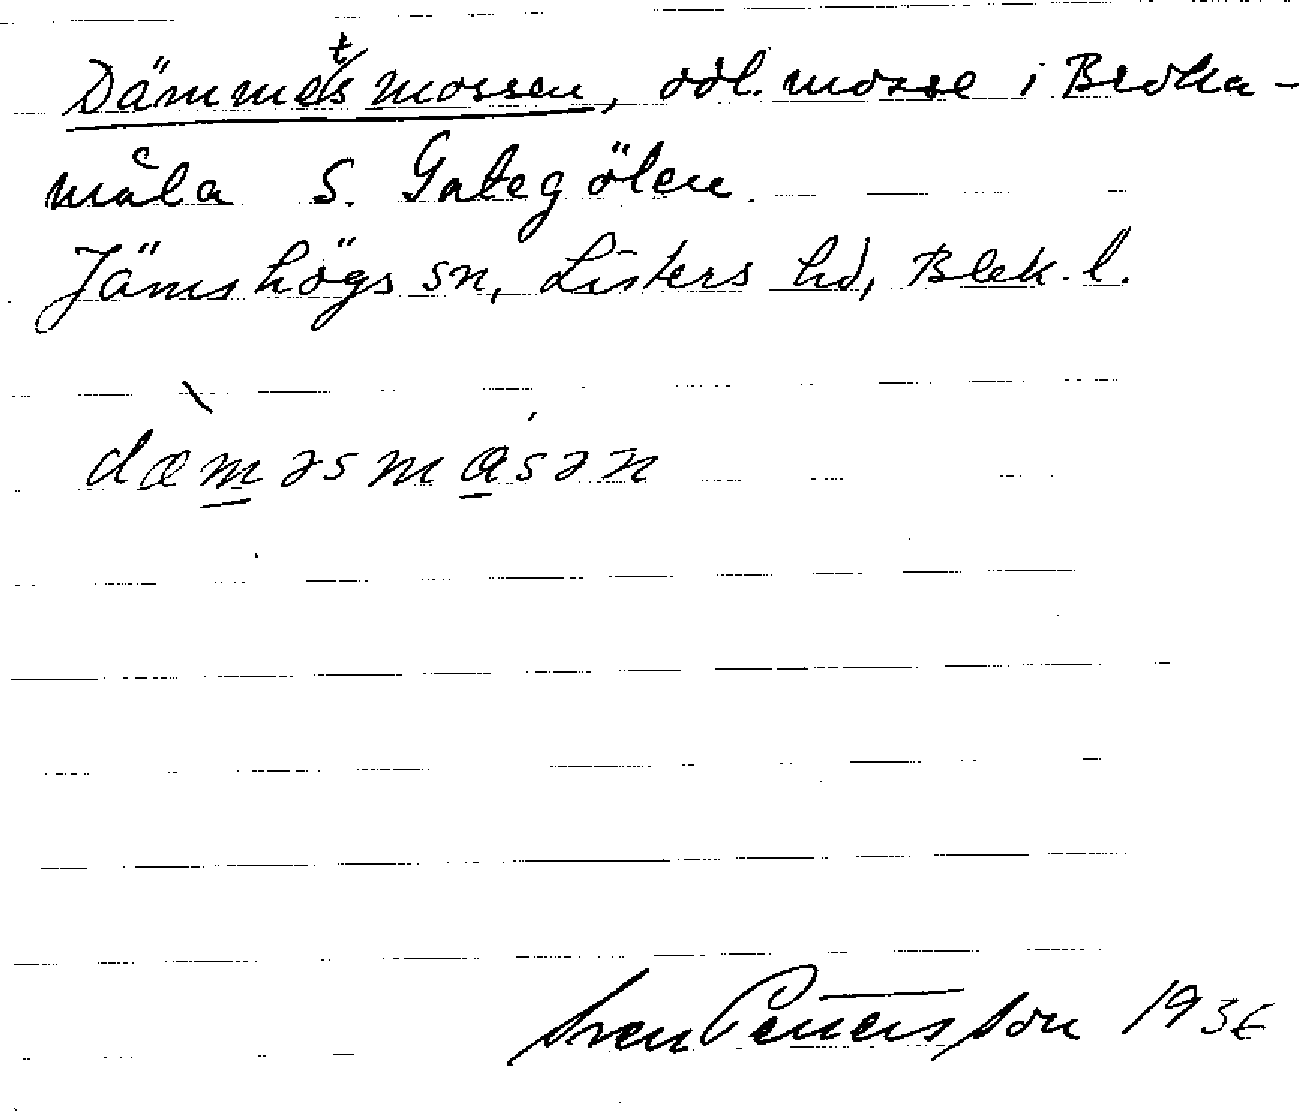 Dämmetsmossen, odl. mosse i Broka-
måla S. Galtegölen.
Jämshögs sn, Listers hd, Blek. l.
dæmǝsmasǝn
Sven Pettersson 1936